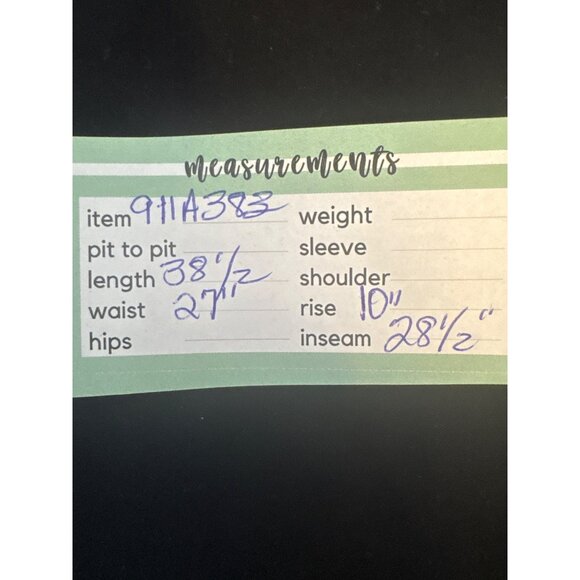 measurements
item 911A383 weight
pit to pit sleeve
length 38 1/2 shoulder
waist 27" rise 10"
hips inseam 28 1/2"